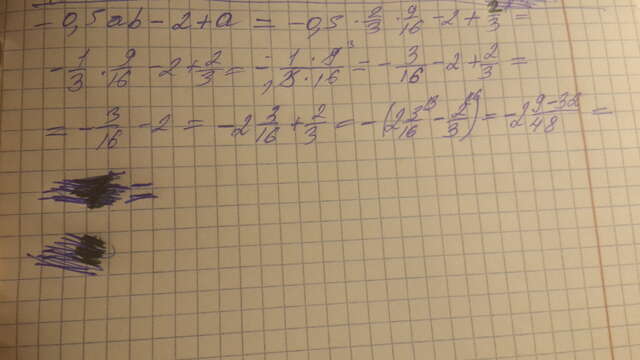 -0,5ab-2+a = -0,5 · 2/3 · 9/16 - 2 + 2/3 =
-1/3 · 9/16 - 2 + 2/3 = - 1·9³/3·16 = - 3/16 - 2 + 2/3 =
= - 3/16 - 2 = -2 3/16 + 2/3 = -(2 3/16 - 2/3) = -2 9-32/48 =
=